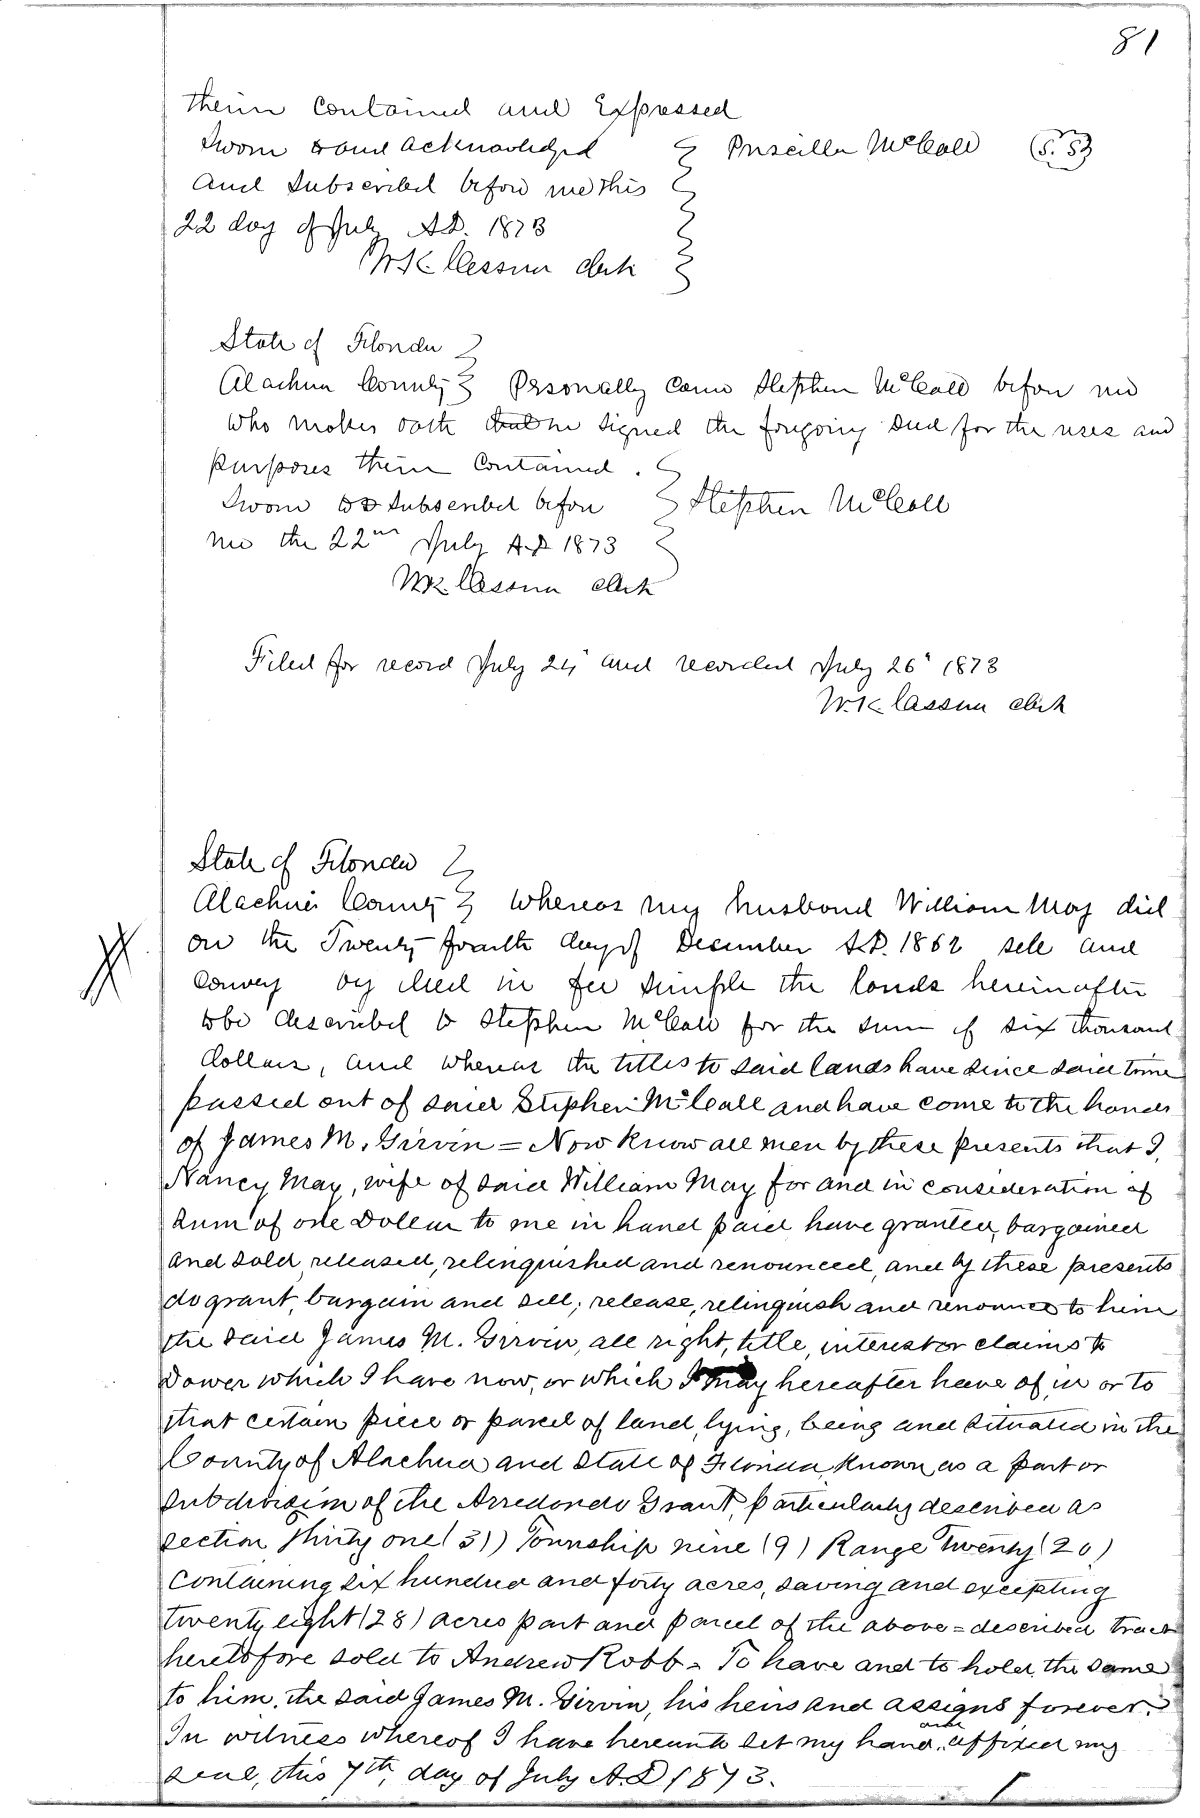 81
therin Contained and Expressed
Sworn to and acknowledged } Priscilla McCall (S.S)
and Subscribed before me this
22 day of July A.D. 1873
W.K. Cessna clerk
State of Florida }
Alachua County } Personally came Stephen McCall before me
who makes oath that he signed the foregoing Deed for the uses and
purposes therin Contained.
Sworn to & Subscribed before } Stephen McCall
me the 22nd July A.D 1873
W.K. Cessna clerk
Filed for record July 24" and recorded July 26" 1873
W.K Cessna clerk
State of Florida }
Alachua County } Whereas my husband William May did
on the Twenty fourth day of December A.D. 1862 sell and
Convey by deed in fee simple the lands hereinafter
to be described to Stephen McCall for the sum of six thousand
dollars, and whereas the titles to said lands have since said time
passed out of said Stephen McCall and have come to the hands
of James M. Girvin = Now Know all men by these presents that I,
Nancy May, wife of said William May for and in consideration of
Sum of one Dollar to me in hand paid have granted, bargained
and sold, released, relinquished and renounced, and by these presents
do grant, bargain and sell, release, relinquish and renounce to him
the said James M. Girvin, all right, title, interest or claims to
Dower which I have now, or which I may hereafter have of, in or to
that certain piece or parcel of land, lying, being and situated in the
County of Alachua and State of Florida, known as a part or
subdivision of the Arredondo Grant, particularly described as
section thirty one (31) Township nine (9) Range Twenty (20)
Containing six hundred and forty acres, saving and excepting
twenty eight (28) acres part and parcel of the above = described tract
heretofore sold to Andrew Robb - To have and to hold, the same
to him, the said James M. Girvin, his heirs and assigns forever.
In witness whereof I have hereunto set my hand and affixed my
seal, this 7th, day of July A.D 1873.